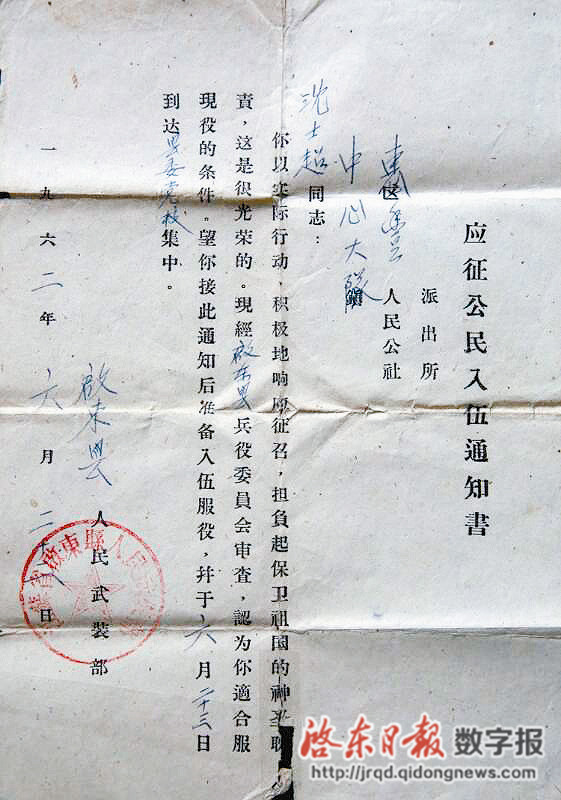 应征公民入伍通知書
派出所
東 区 豊 人民公社
中心大隊 鎮
沈士超同志：
你以实际行动，积极地响应征召，担負起保卫祖国的神圣職
責，这是很光荣的。現經啟东县兵役委員会审查，認为你適合服
現役的条件。望你接此通知后准备入伍服役，幷于六月二十三日
到达县委党校集中。
啟东县人民武装部
一九六二年六月二十 日
启东日报 数字报
http://jrqd.qidongnews.com